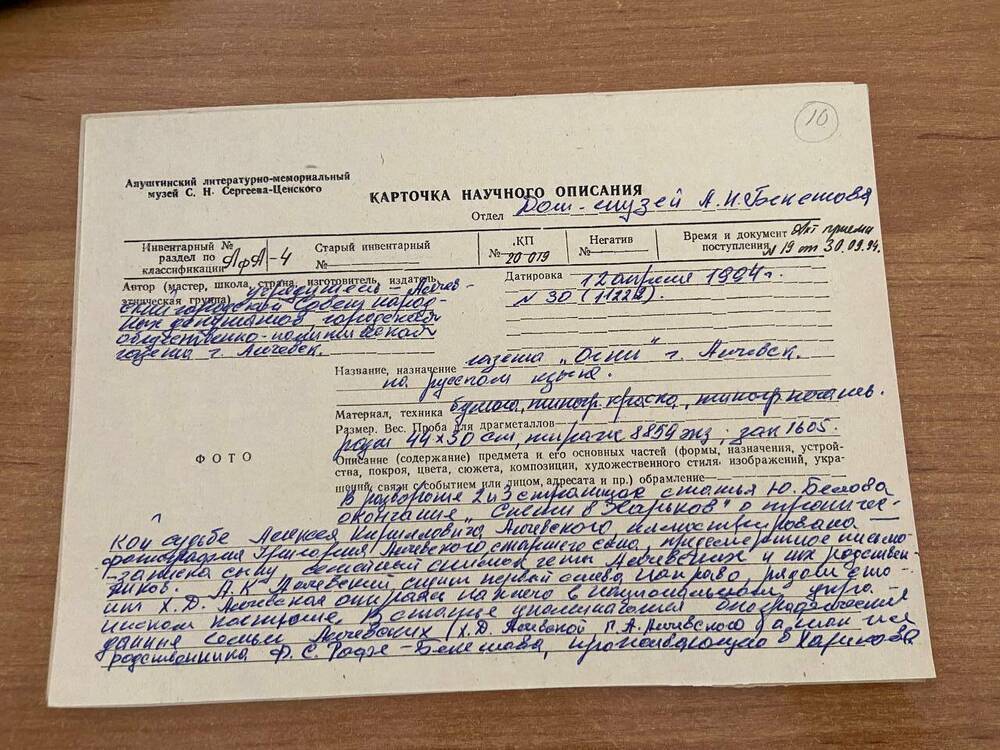 10
Алуштинский литературно-мемориальный
музей С. Н. Сергеева-Ценского
КАРТОЧКА НАУЧНОГО ОПИСАНИЯ
Отдел Дом-музей А.Н. Бекетова
Инвентарный №
раздел по
классификации АфА-4
Старый инвентарный
№
КП
№ 20 019
Негатив
№
Время и документ Акт приема
поступления № 19 от 30.09.94.
Автор (мастер, школа, страна, изготовитель, издатель,
этническая группа) учредитель – Алчев-
ский городской Совет народ-
ных депутатов городская
общественно-политическая
газета г. Алчевск.
Датировка 12 апреля 1994 г.
N 30 (11228).
Название, назначение газета „Огни" г. Алчевск.
на русском языке.
Материал, техника бумага, типогр. краска, типогр. печать.
Размер. Вес. Проба для драгметаллов
разм 44×30 см, тираж 8854 экз, зак 1605.
ФОТО
Описание (содержание) предмета и его основных частей (формы, назначения, устрой-
ства, покроя, цвета, сюжета, композиции, художественного стиля, изображений, укра-
шений, связи с событием или лицом, адресата и пр.) обрамление
В развороте 2 и 3 страницах статья Ю. Белова
окончание „Спети в Харьков" о трагичес-
кой судьбе Алексея Кирилловича Алчевского иллюстрирована —
фотография Григория Алчевского старшего сына, предсмертное письмо-
-записка сыну, семейный снимок четы Алчевских и их родствен-
ников. А.К. Алчевский сидит первый слева направо, рядом с
ним Х.Д. Алчевская в национальном укра-
инском костюме. В статье упоминаются биографические
данные семьи Алчевских (Х.Д. Алчевской Г.А. Алчевского а также
родственника Ф.С. Рофе-Бекетова, проживающую в Харькове